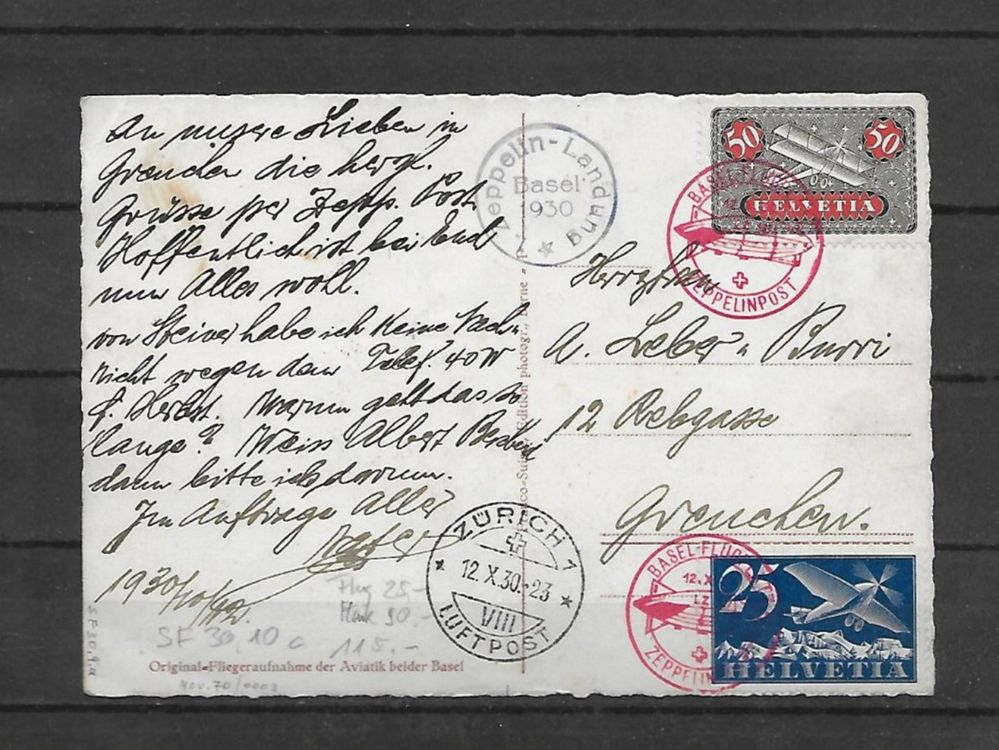 An unsere Lieben in
Grenchen die herzl.
Grüsse per Zepp. Post.
Hoffentlich ist bei End
nur Alles wohl.
von habe ich keine Nach-
richt wegen dem Telef. 40W
f. Herbst. Warum geht das so
lange? Weiss Albert Bescheid
dann bitte ich darum.
Im Auftrage Aller
1930/10/12.
Flug 25.-
Mark 90.-
SF 30,10 c 115.-
Original-Fliegeraufnahme der Aviatik beider Basel
Nov. 70/0003
SF 30,9a
Zeppelin-Landung
Basel
1930
50 50
HELVETIA
BASEL-FLUG
ZEPPELINPOST
A. Leber - Burri
12 Rebgasse
Grenchen.
ZÜRICH 1
12.X.30.-23
VIII
LUFTPOST
BASEL-FLUG
12.X
LZ
ZEPPELIN
25
HELVETIA